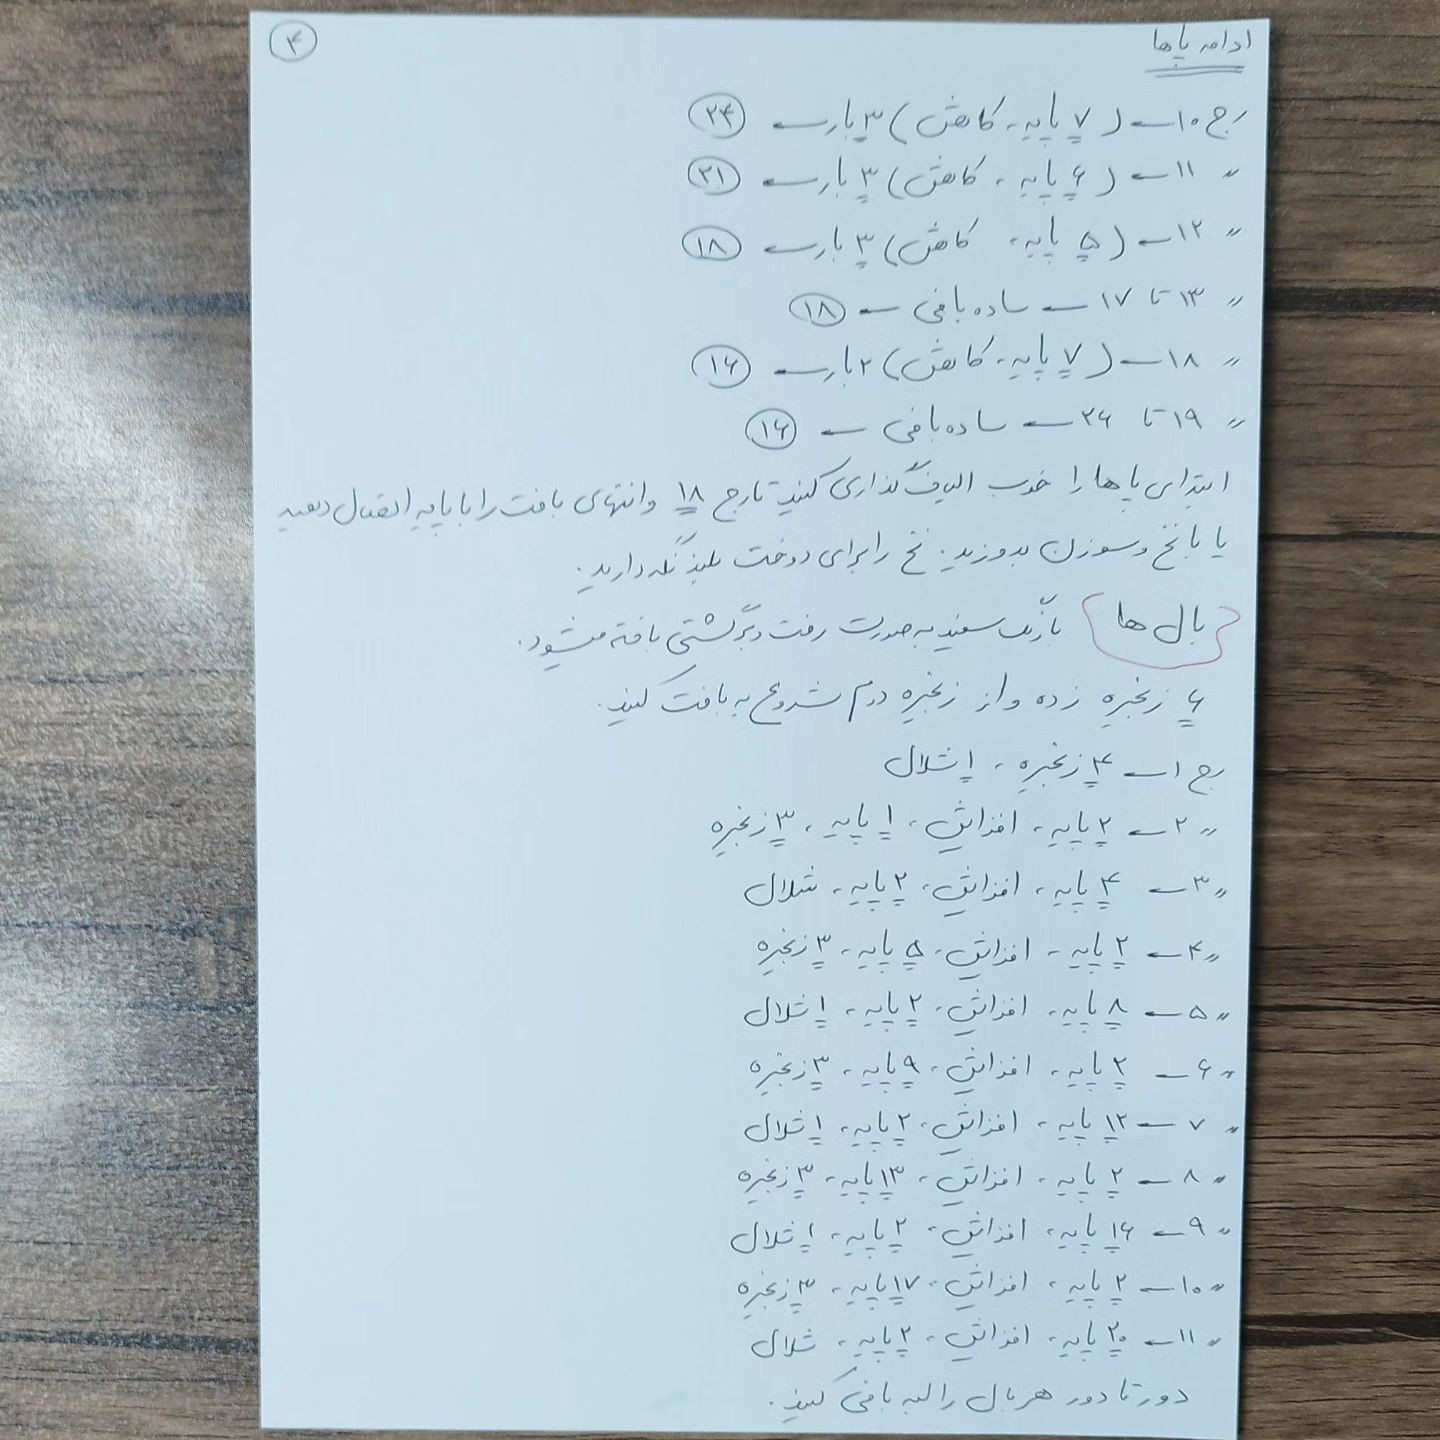 ۴
ادامه پاها
رج ۱۰ ← (۷ پایه، کاهش) ۳ بار ← ۲۴
〃 ۱۱ ← (۶ پایه، کاهش) ۳ بار ← ۲۱
〃 ۱۲ ← (۵ پایه، کاهش) ۳ بار ← ۱۸
〃 ۱۳ تا ۱۷ ← ساده بافی ← ۱۸
〃 ۱۸ ← (۷ پایه، کاهش) ۲ بار ← ۱۶
〃 ۱۹ تا ۲۶ ← ساده بافی ← ۱۶
ابتدای پاها را خوب الیاف گذاری کنید تا رج ۱۸ و انتهای بافت را با پایه اتصال دهید
یا با نخ و سوزن بدوزید. نخ را برای دوخت بلند نگه دارید.
بال ها با رنگ سفید به صورت رفت و برگشتی بافته میشود.
۶ زنجیره زده و از زنجیره دوم شروع به بافت کنید.
رج ۱ ← ۴ زنجیره، ۱ شلال
〃 ۲ ← ۲ پایه، افزایش، ۱ پایه، ۳ زنجیره
〃 ۳ ← ۴ پایه، افزایش، ۲ پایه، شلال
〃 ۴ ← ۲ پایه، افزایش، ۵ پایه، ۳ زنجیره
〃 ۵ ← ۸ پایه، افزایش، ۲ پایه، ۱ شلال
〃 ۶ ← ۲ پایه، افزایش، ۹ پایه، ۳ زنجیره
〃 ۷ ← ۱۲ پایه، افزایش، ۲ پایه، ۱ شلال
〃 ۸ ← ۲ پایه، افزایش، ۱۳ پایه، ۳ زنجیره
〃 ۹ ← ۱۶ پایه، افزایش، ۲ پایه، ۱ شلال
〃 ۱۰ ← ۲ پایه، افزایش، ۱۷ پایه، ۳ زنجیره
〃 ۱۱ ← ۲۰ پایه، افزایش، ۲ پایه، شلال
دور تا دور هر بال را لبه بافی کنید.